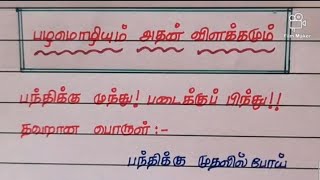 பழமொழியும் அதன் விளக்கமும்
பந்திக்கு முந்து! படைக்குப் பிந்து!!
தவறான பொருள்:-
பந்திக்கு முதலில் போய்